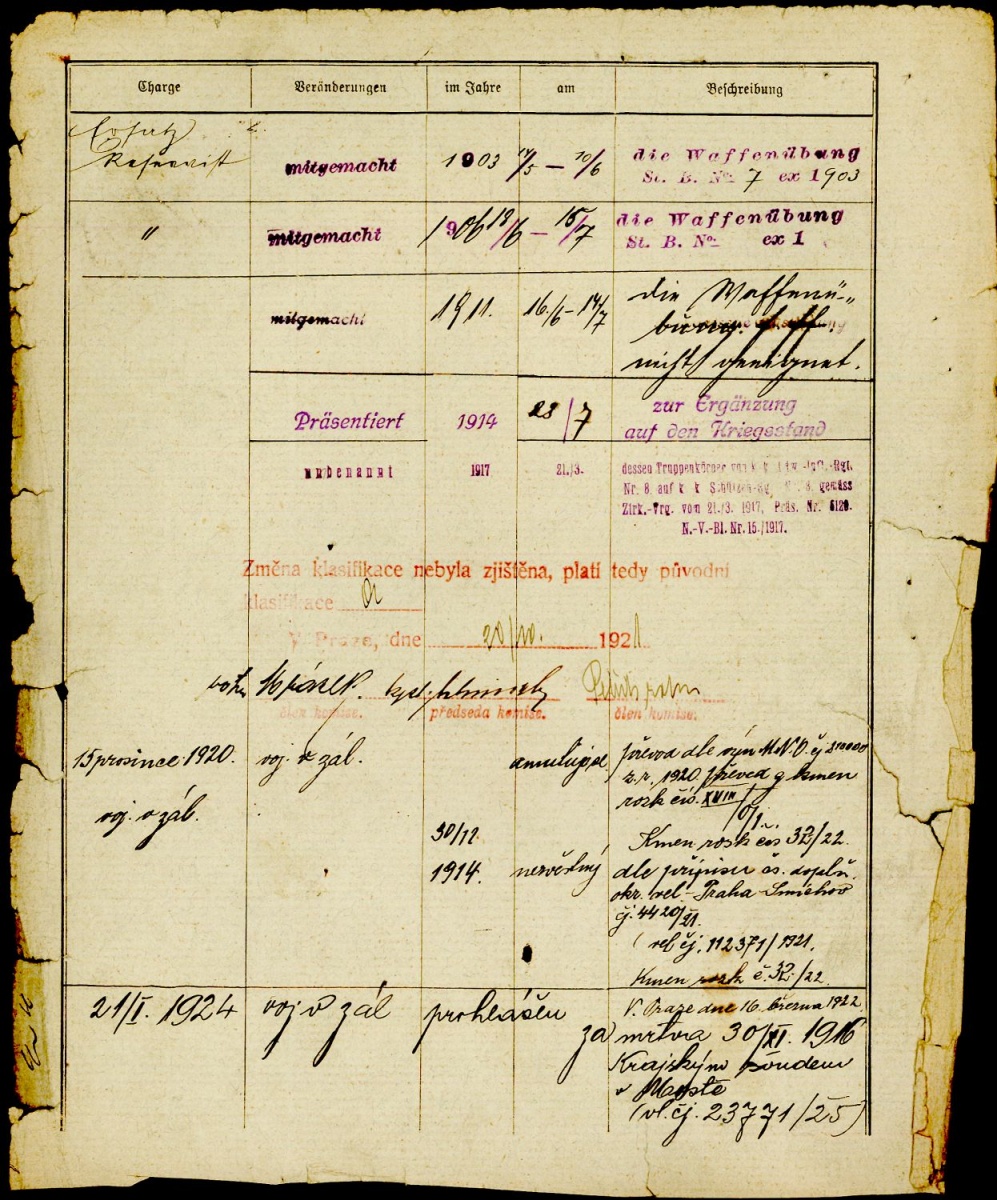 Charge Veränderungen im Jahre am Beschreibung
Ersatz
Reservist mitgemacht 1903 14/5 — 10/6 die Waffenübung
St. B. No 7 ex 1903
" mitgemacht 1906 18/6 — 15/7 die Waffenübung
St. B. No ex 1
mitgemacht 1911. 16./6 – 14/7 die Waffenü-
bung
nicht geeignet.
Präsentiert 1914 28/7 zur Ergänzung
auf den Kriegsstand
unbenannt 1917 21./3. dessen Truppenkörper von k. k. Ldw.-Inft.-Rgt.
Nr. 8. auf k. k. Schützen-Rg. Nr. 8. gemäss
Zirk.-Vrg. vom 21./3. 1917, Präs. Nr. 5129.
N.-V.-Bl. Nr. 15./1917.
Změna klasifikace nebyla zjištěna, platí tedy původní
klasifikace
V Praze, dne 20/10. 1921
člen komise. předseda komise. člen komise.
15 prosince 1920. voj. v zál. převod dle výn M.N.O. čj 210000
z. r. 1920
rozk čís. XVIII
voj. v zál.
30/12 Kmen. rozk čís 32/22.
1914. nezvěstný dle přípisu čs. doplň.
okr. vel. Praha-Smíchov
čj. 4420/21.
( vel čj. 112371/1921.
Kmen rozk č. 32./22.
V. Praze dne 16. března 1922
21/I. 1924 voj v zál prohlášen
za mrtva 30/XI. 1916
Krajským soudem
v Mostě
(vl. čj. 23771/25)